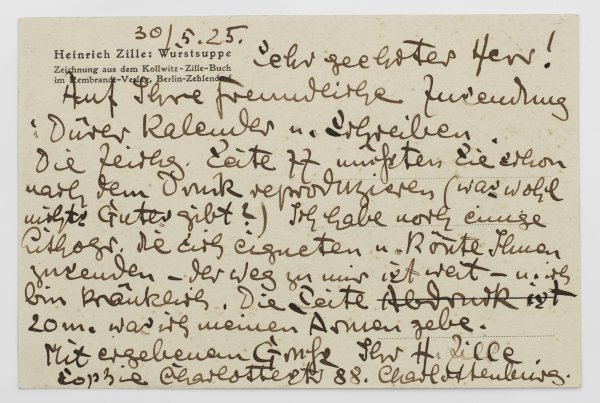 30/5.25.
Heinrich Zille: Wurstsuppe
Zeichnung aus dem Kollwitz-Zille-Buch
im Rembrandt-Verlag, Berlin-Zehlendorf
Sehr geehrter Herr!
Auf Ihre freundliche Zusendung
: Dürer Kalender u. Schreiben.
Die Zeichg. Seite 77 müßten Sie schon
nach dem Druck reproduzieren (was wohl
nichts Gutes gibt?) Ich habe noch einige
Lithogr. die sich eigneten u. könte Ihnen
zusenden – der weg zu mir ist weit – u. ich
bin kränklich. Die Seite Abdruck ist
20 m. was ich meinen Armen gebe.
Mit ergebenem Gruß Ihr H. Zille.
Sophie Charlottestr 88. Charlottenburg.